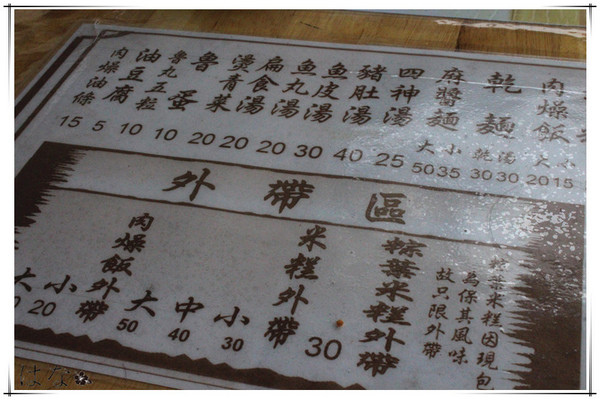 肉燥飯 大20 小15
乾麵 乾30 湯30
麻醬麵 大50 小35
四神湯 25
豬肚湯 40
魚皮湯 30
魚丸湯 20
扁食湯 20
燙青菜 20
魯蛋 10
魯丸五粒 10
油豆腐 5
肉燥油條 15
外帶區
粽葉米糕因現包
為保其風味
故只限外帶
粽葉米糕外帶
米糕外帶 30
肉燥飯外帶
大50 中40 小30
大 小20